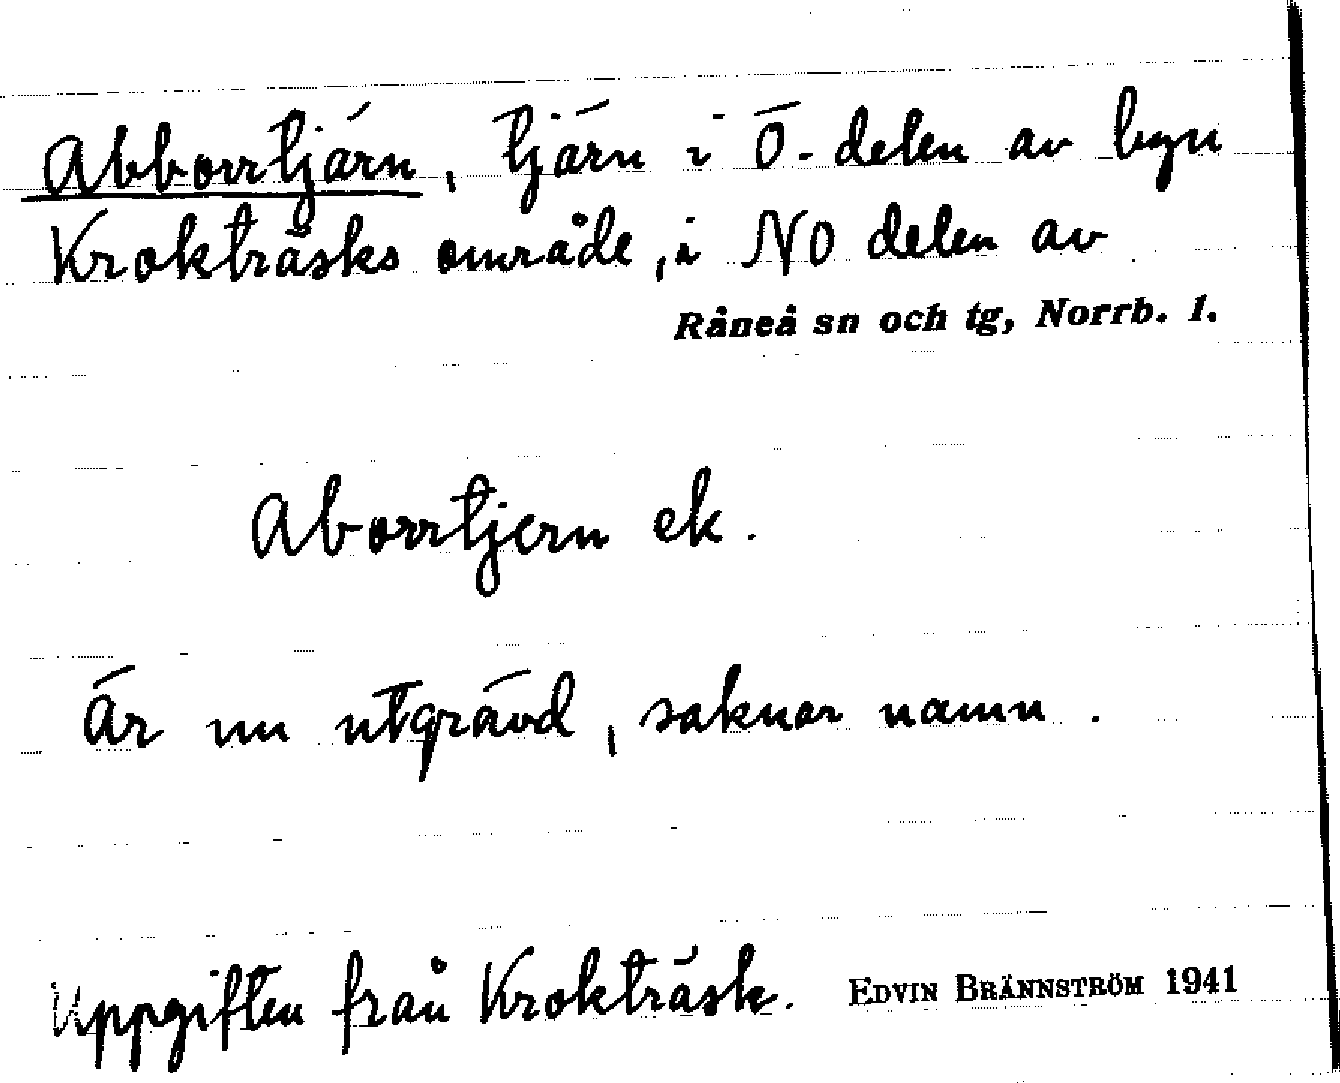 Abborrtjärn, tjärn i Ö. delen av byn
Krokträsks område, i NO delen av
Råneå sn och tg, Norrb. l.
Aborrtjern ek.
Är nu utgrävd, saknar namn.
Uppgiften från Krokträsk. EDVIN BRÄNNSTRÖM 1941